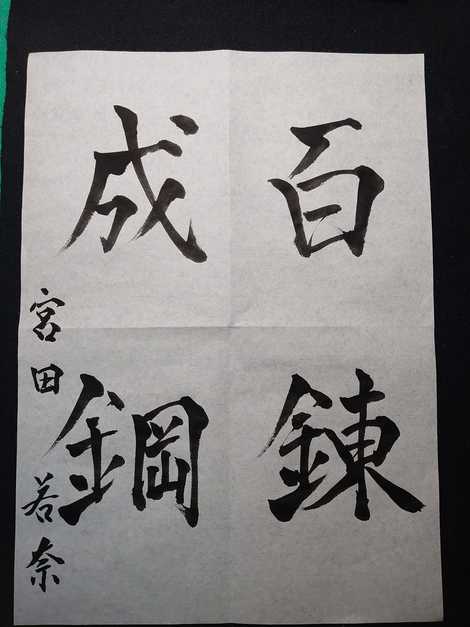 百錬
成鋼
宮田 若奈